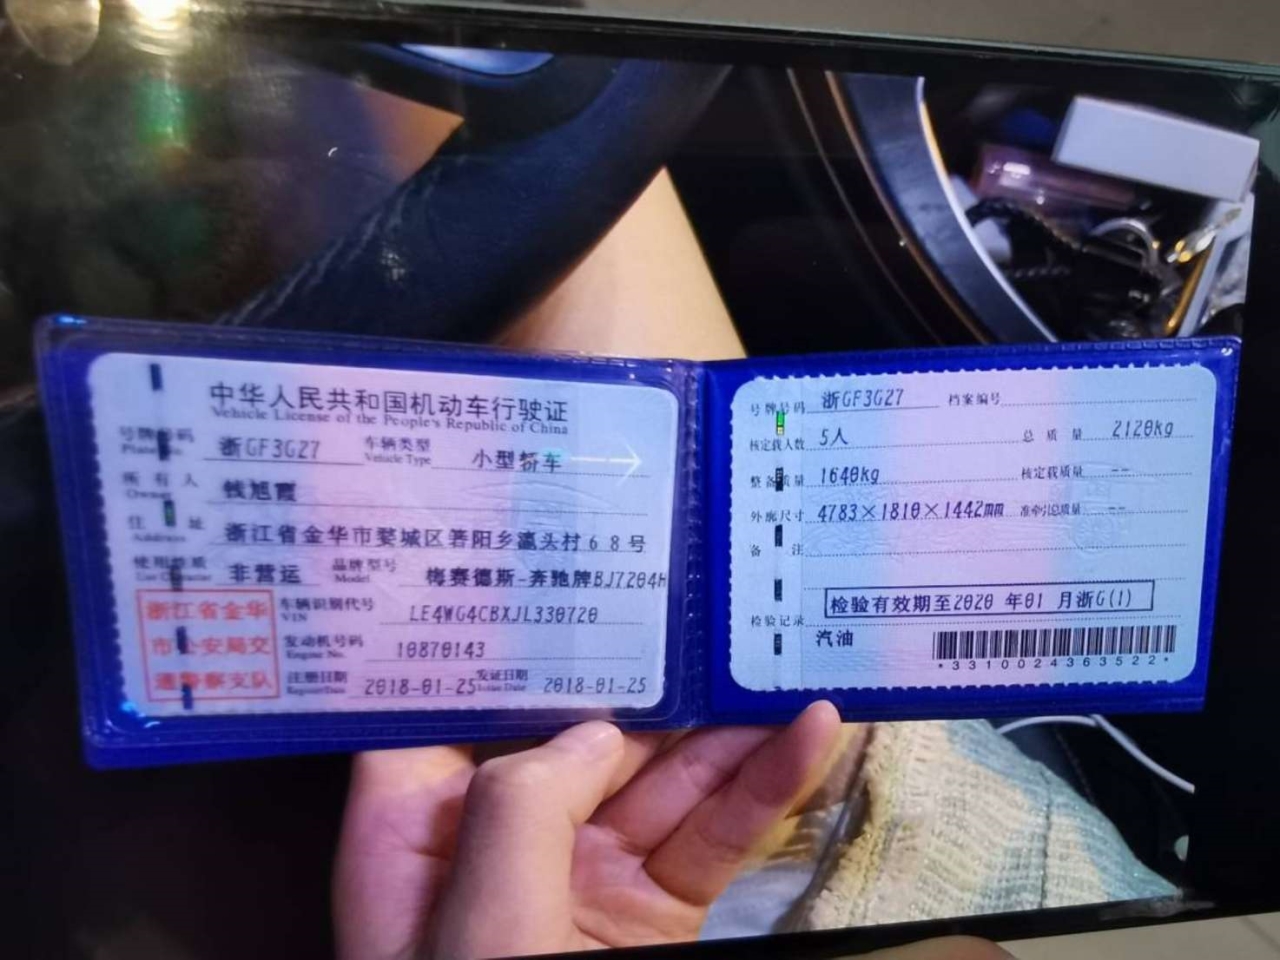 中华人民共和国机动车行驶证
Vehicle License of the People's Republic of China
号牌号码 浙GF3G27 车辆类型 小型轿车
Plate No. Vehicle Type
所有人 钱旭霞
Owner
住址 浙江省金华市婺城区箬阳乡瀛头村68号
Address
使用性质 非营运 品牌型号 梅赛德斯-奔驰牌BJ7204H
Use Character Model
浙江省金华
市公安局交
通警察支队
车辆识别代号 LE4WG4CBXJL330720
VIN
发动机号码 10870143
Engine No.
注册日期 2018-01-25 发证日期 2018-01-25
Register Date Issue Date
号牌号码 浙GF3G27 档案编号
核定载人数 5人 总质量 2120kg
整备质量 1640kg 核定载质量 --
外廓尺寸 4783×1810×1442mm 准牵引总质量 --
备注
检验有效期至2020年01月浙G(1)
检验记录
汽油
*3310024363522*